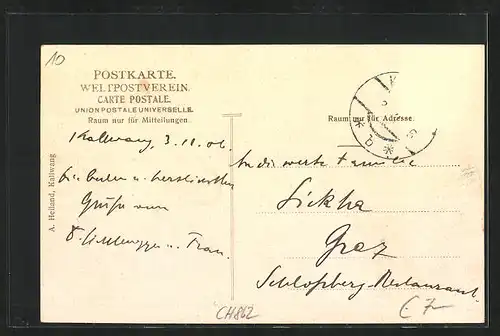 10
POSTKARTE.
WELTPOSTVEREIN.
CARTE POSTALE.
UNION POSTALE UNIVERSELLE.
Raum nur für Mitteilungen.
Kallwang, 3.11.06.
Die besten u. herzlichsten
Grüße von
u. Frau.
A. Heiland, Kallwang
Raum nur für Adresse.
An die werte Familie
Sickha
Graz
Schloßberg-Restaurant.
CH862
C7-